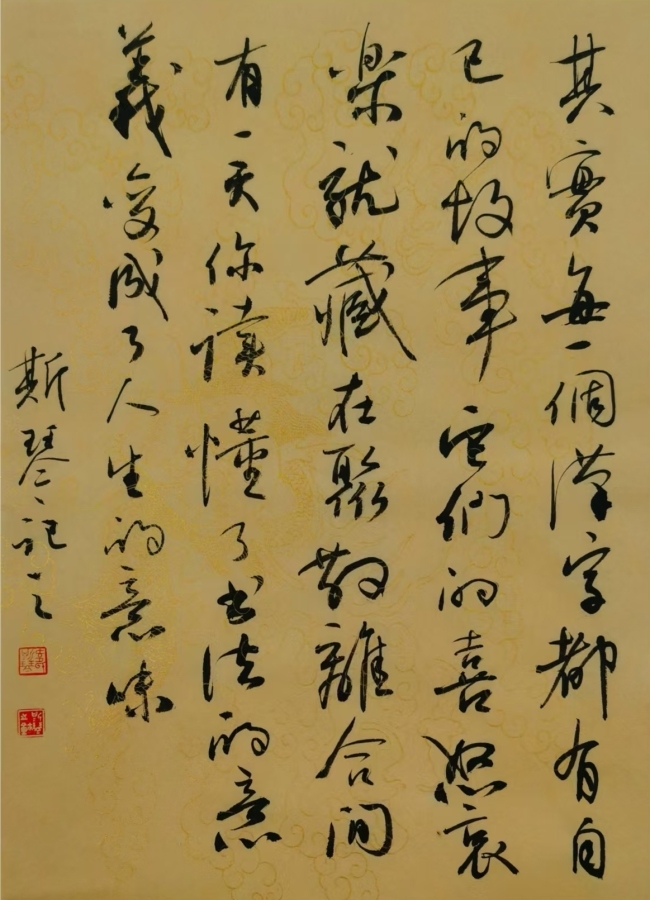 其實每一個漢字都有自
己的故事它們的喜怒哀
樂就藏在聚散離合間
有一天你读懂了书法的意
義变成了人生的意味
斯琴记之